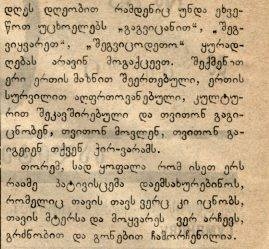 დღეს დღეობით რამდენიც უნდა ეხვე-
წოთ უცხოელებს „გაგვიცანით“, „შეგ-
ვიყვარეთ“, „შეგვიცოდეთო“ ყურად-
ღებას არავინ მოგაქცევთ. შექმენით
ერი ერთის მაზნით შეერთებული, ერთის
სურვილით აღფრთოვანებული, კულტუ-
რით შეკავშირებული და თვითონ გაგი-
ცნობენ, თვითონ მოვლენ, თვითონ გა-
იგებენ თქვენ ჭირ-ვარამს.
თორემ, სად ყოფალა რომ ისეთ ერს
რაამე პატივისცემა დაემსახურებინოს,
რომელიც თავის თავს ვერც კი იცნობს,
თავის მტერსა და მოყვარეს ვერ არჩევს,
გრძნობით და გონებით ჩამორჩენილია.